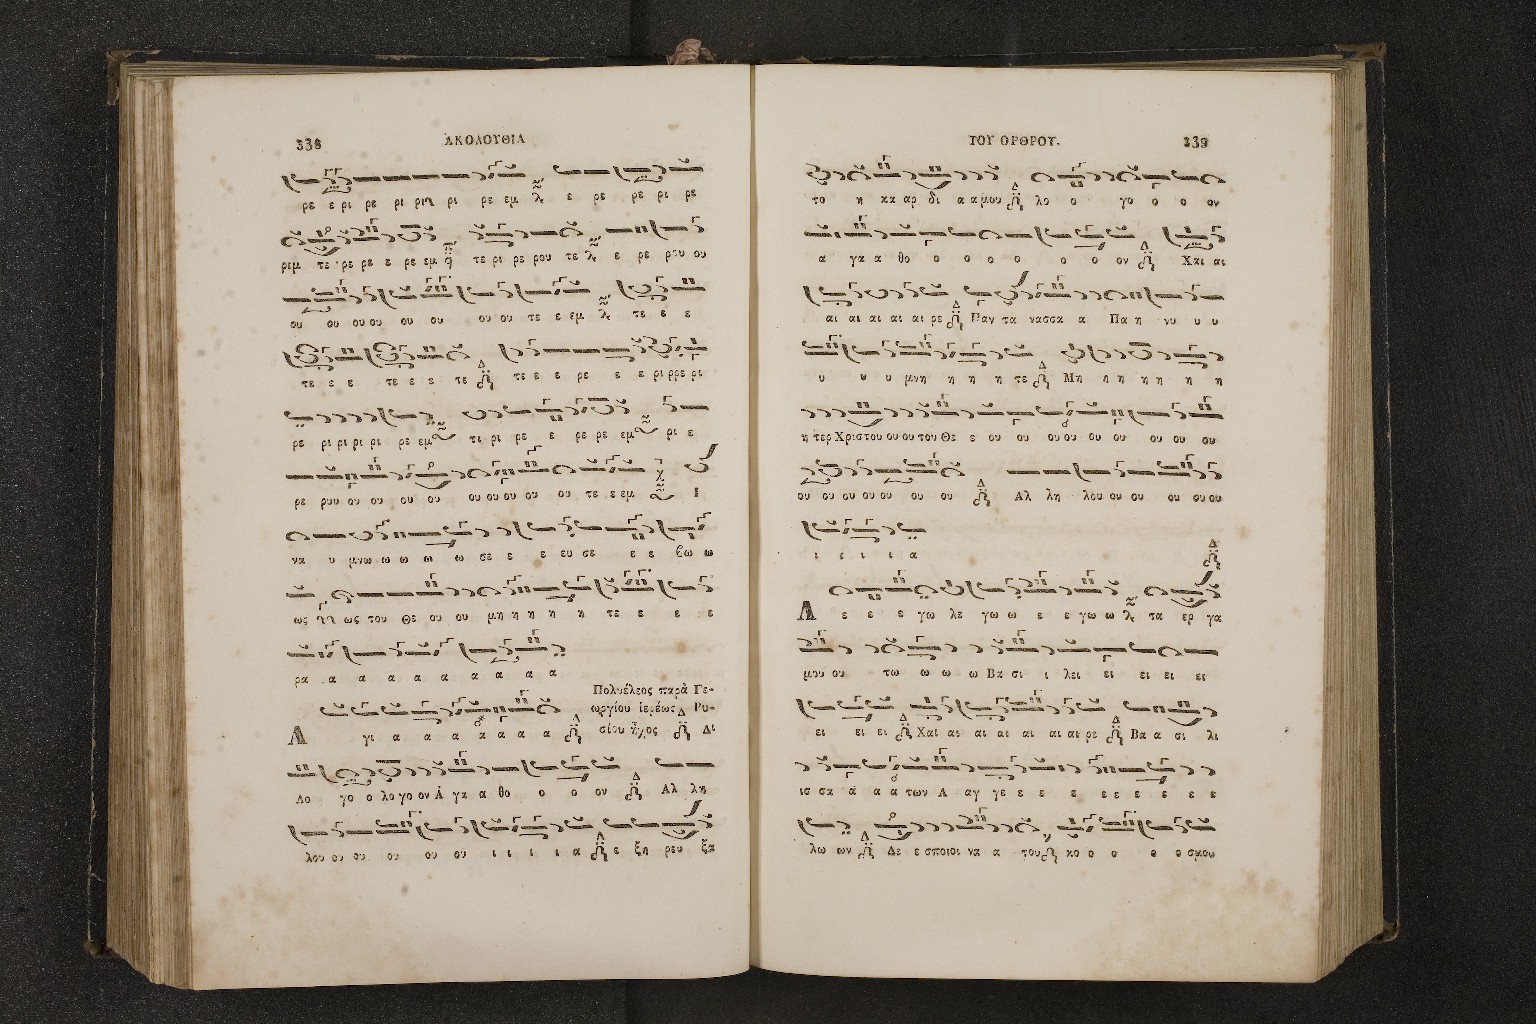 338 ΑΚΟΛΟΥΘΙΑ
ρε ε ρι ρε ρι ριρι ρι ρε εμ ε ρε ρε ρι ρε
ριμ τε ρε ρε ε ρε εμ τε ρι ρε ρου τε ε ρε ρου ου
ου ου ου ου ου ου ου ου τε ε εμ τε ε ε
τε ε ε τε ε ε τε τε ε ε ρε ε ε ρι ρρε ρι
ρε ρι ρι ρι ρι ρε εμ τι ρι ρε ε ρε ρε εμ ρι ε
ρε ρου ου ου ου ου ου ου ου ου ου τε ε εμ Ι
να υ μνω ω ω ω ω σε ε ε ευ σε ε ε βω ω
ως ως του Θε ου ου μη η η η η τε ε ε ε
ρα α α α α α α α α
Πολυέλεος παρὰ Γε-
ωργίου ἱερέως Ρυ-
Λ γι α α α α α α α σίου ἦχος Δι
Λο γο ο λο γο ον Ἀ γα α θο ο ο ον Αλ λη
λου ου ου ου ου ου ι ι ι ι α ε ξη ρευ ξα
ΤΟΥ ΟΡΘΡΟΥ. 339
το η κα αρ δι α α μου λο ο γο ο ο ον
α γα α θο ο ο ο ο ο ο ον Χαι αι
αι αι αι αι αι ρε Παν τα νασσα α Πα η νυ υ υ
υ υ υ μνη η η η τε Μη η η η η η η
η τερ Χριστου ου ου του Θε ε ου ου ου ου ου ου ου ου ου
ου ου ου ου ου ου ου Αλ λη λου ου ου ου ου ου
ι ι ι ι α
Λ ε ε ε γω λε γω ω ε ε γω ω τα ερ γα
μου ου τω ω ω ω Βα σι ι λει ει ει ει ει
ει ει ει Χαι αι αι αι αι αι αι ρε Βα α σι λι
ισ σα α α α των Α αγ γε ε ε ε ε ε ε ε ε ε
λω ων Δε ε σποιοι να α του κο ο ο ο ο σμου